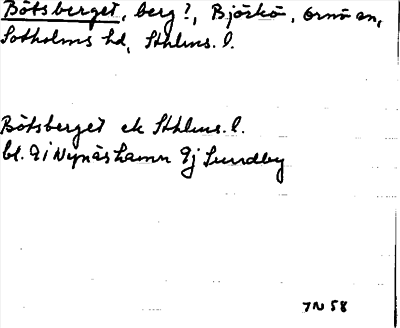 Båtsberget, berg?, Björkö, Ornö sn,
Sotholms hd, Sthlms. l.
Båtsberget ek Sthlms. l.
bl. 9i Nynäshamn 9j Sundby
7N 58